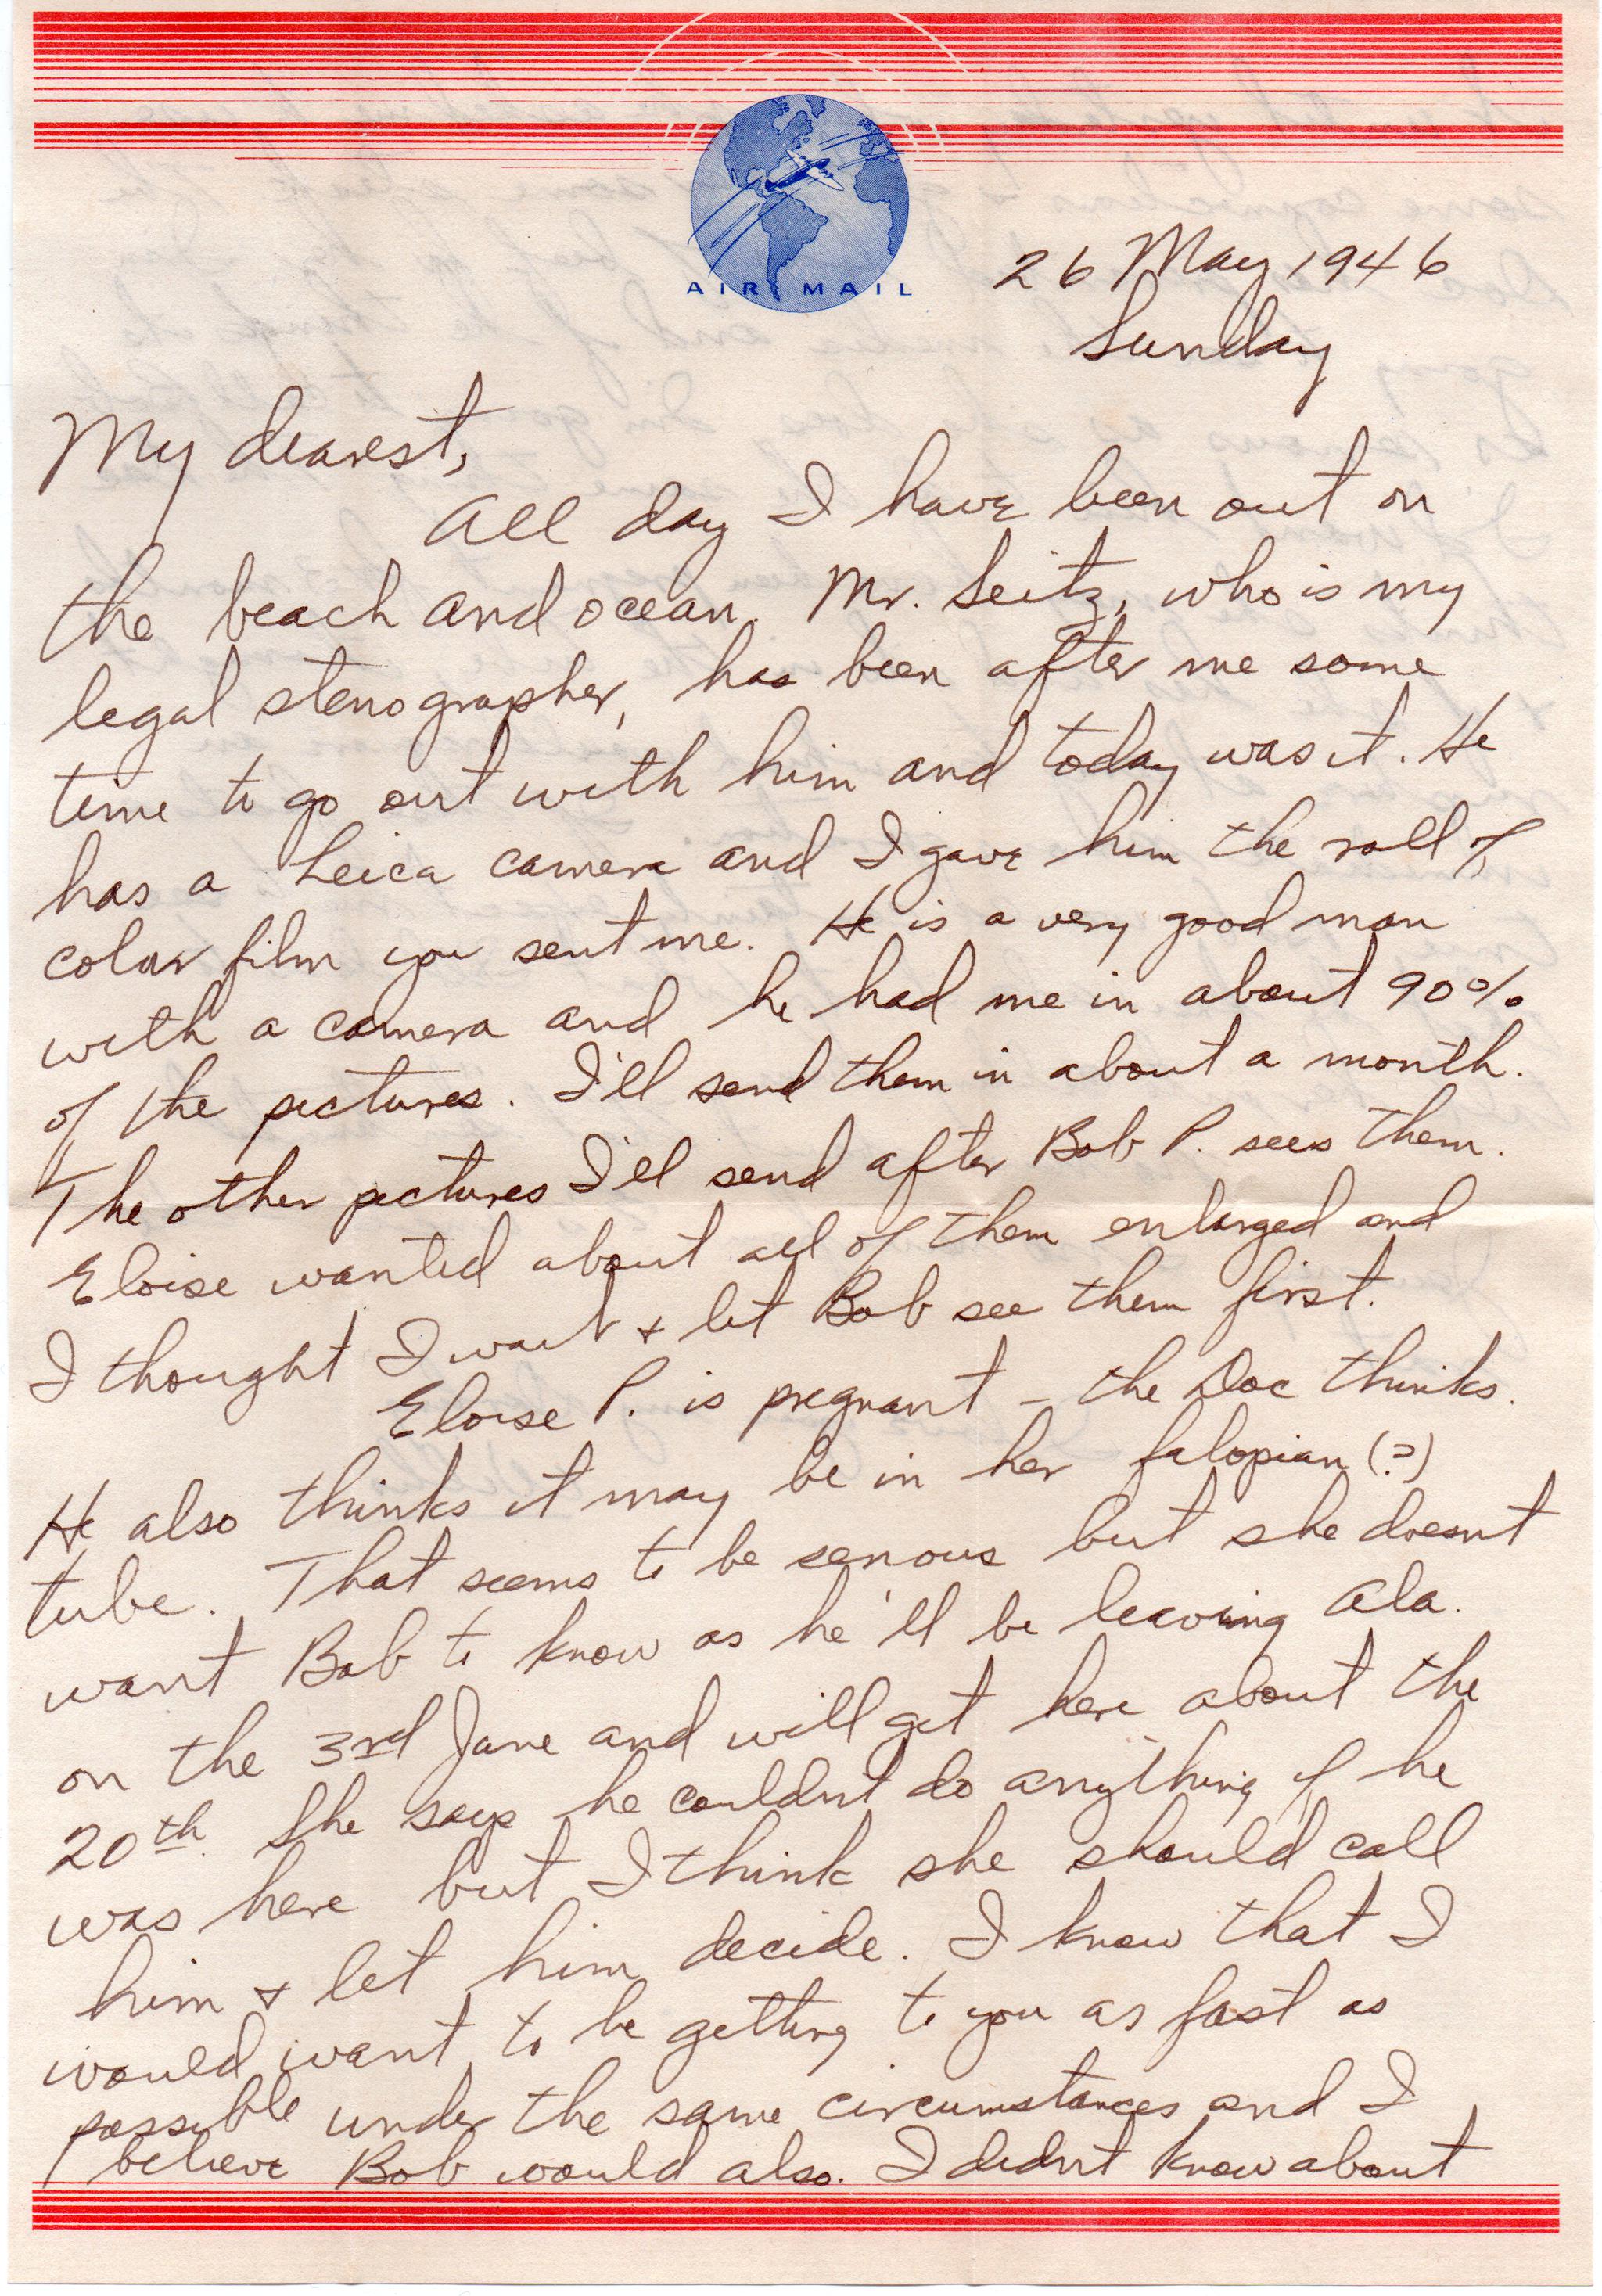 AIR MAIL
26 May 1946
Sunday
My dearest,
All day I have been out on
the beach and ocean. Mr. Seitz, who is my
legal stenographer, has been after me some
time to go out with him and today was it. He
has a Leica camera and I gave him the roll of
color film you sent me. He is a very good man
with a camera and he had me in about 90%
of the pictures. I'll send them in about a month.
The other pictures I'll send after Bob P. sees them.
Eloise wanted about all of them enlarged and
I thought I wait & let Bob see them first.
Eloise P. is pregnant – the Doc thinks.
He also thinks it may be in her falopian (?)
tube. That seems to be serious but she doesnt
want Bob to know as he'll be leaving Ala.
on the 3rd June and will get here about the
20th. She says he couldnt do anything if he
was here but I think she should call
him & let him decide. I know that I
would want to be getting to you as fast as
possible under the same circumstances and I
believe Bob would also. I didnt know about